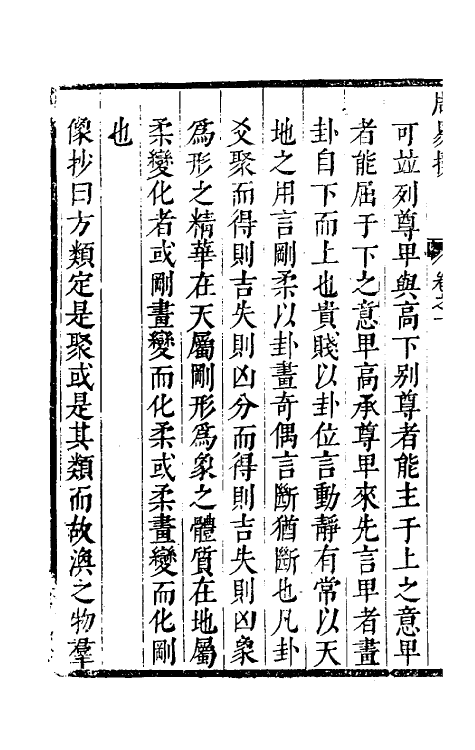 周易
卷之一
可並列尊卑與高下別尊者能主于上之意卑
者能屈于下之意卑高承尊卑來先言卑者畫
卦自下而上也貴賤以卦位言動靜有常以天
地之用言剛柔以卦畫奇偶言斷猶斷也凡卦
爻聚而得則吉失則凶分而得則吉失則凶象
爲形之精華在天屬剛形爲象之體質在地屬
柔變化者或剛畫變而化柔或柔畫變而化剛
也
像抄曰方類定是聚或是其類而故渙之物羣